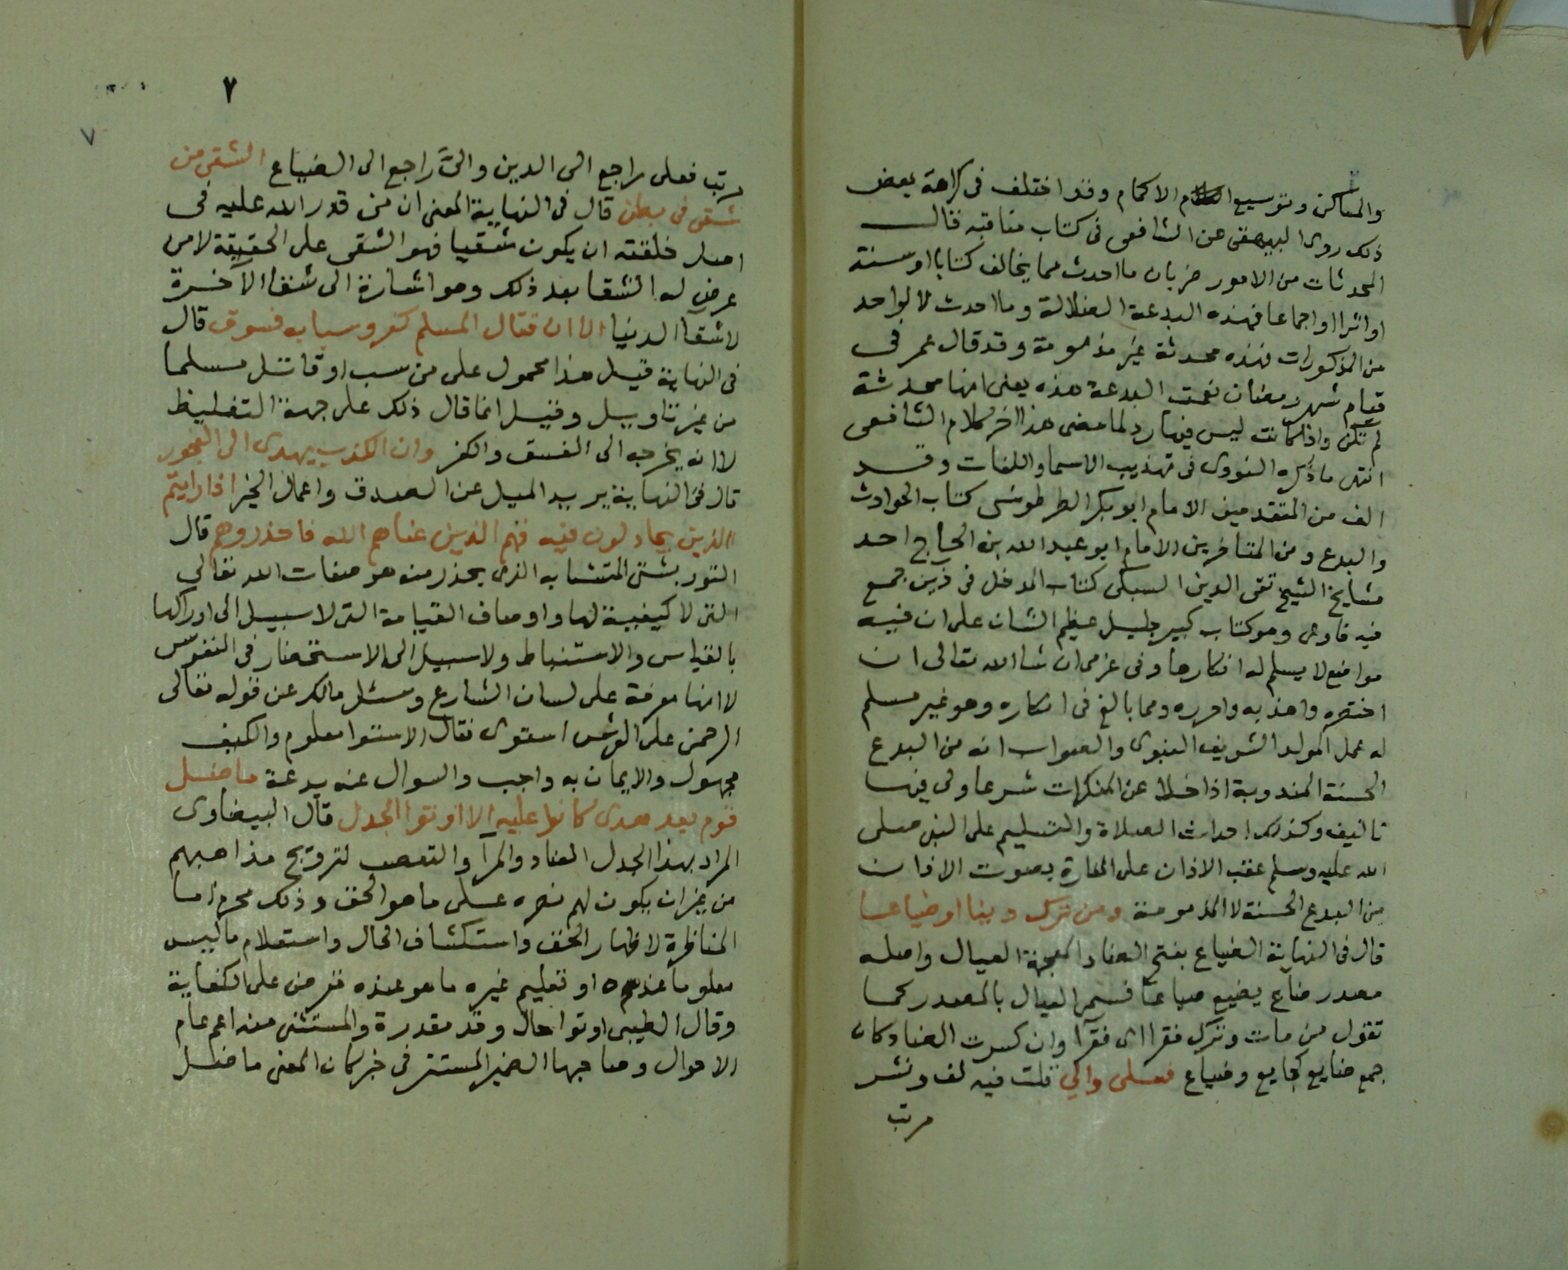 والمساكن وتوسيع الاكمام وقد اختلف فى كراهة بعض
ذلك روى البيهقى عن الشافعى فى كتاب مناقبه قال
المحدثات من الامور ضربان ما احدث مما يخالف كتابا او سنة
او اثرا او اجماعا فهذه البدعة الضلالة وما احدث لا لواحد
من المذكورات فهذه محدثة غير مذمومة وقد قال عمر فى
قيام شهر رمضان نعمت البدعة هذه يعنى انها محدثة
لم تكن واذا كانت ليس فيها رد لما مضى هذا اخر كلام الشافعى
انتهى ما ذكره النووى فى تهذيب الاسما واللغات وقد
الف من المتقدمين الامام ابو بكر الطرطوشى كتاب الحوادث
والبدع ومن المتاخرين الامام ابو عبد الله بن الحاج احد
مشايخ الشيخ تقى الدين السبكى كتاب المدخل فى ذين جمع
فيه فاوعى وهو كتاب كبير جليل عظيم الشان على ان فيه
مواضع لا يسلم له انكارها وفى عزمى ان شا الله تعالى ان
اختصره واهذبه واحرره ومما بالغ فى انكاره وهو غير مسلم
له عمل المولد الشريف النبوى والصواب انه من البدع
الحسنة المندوبة اذا خلا عن المنكرات شرعا ولى فيها
تاليف وكذلك احداث الصلاة والتسليم على النبى صلى
الله عليه وسلم عقب الاذان على المنارة بصوت الاذان
من البدع الحسنة لا المذمومة ومن ترك دينا او ضياعا
قال فى النهاية الضياع بفتح الضاد المعجمة العيال واصله
مصدر ضاع يضيع ضياعا فسمى العيال بالمصدر كما
تقول من مات وترك فقرا اى فقرآ وان كسرت الضاد كان
جمع ضايع كجايع وجياع فعلى والى قلت فيه لف ونشر
مرتب
٧
٧
مرتب فعلى راجع الى الدين والىّ راجع الى الضياع الشقى من
شقى فى بطن قال فى النهاية المعنى ان من قدر الله عليه فى
اصل خلقته ان يكون شقيا فهو الشقى على الحقيقة لا من
عرض له الشقا بعد ذلك وهو اشارة الى شقا الآخرة
لا شقا الدنيا الا ان قتال المسلم كفر وسبابه فسوق قال
فى النهاية قيل هذا محمول على من سب او قاتل مسلما
من غير تاويل وقيل انما قال ذلك على جهة التغليظ
لا انه يخرجه الى الفسق والكفر وان الكذب يهدى الى الفجور
قال فى النهاية يريد الميل عن الصدق واعمال الخير اذا رايتم
الذين يجادلون فيه فهم الذين عناهم الله فاحذروهم قال
التوربشتى المتشابه الذى يحذر منه هو صفات الله تعالى
التى لا كيفية لها واوصاف القيامة التى لا سبيل الى ادراكها
بالقياس والاستنباط ولا سبيل الى الاستحضار فى النفوس
لا انها معرفة على لسان الشارع وسئل مالك عن قوله تعالى
الرحمن على العرش استوى فقال الاستوا معلوم والكيف
مجهول والايمان به واجب والسوال عنه بدعة ما ضل
قوم بعد هدى كانوا عليه الا اوتوا الجدل قال البيضاوى
المراد بهذا الجدل العناد والمرآ والتعصب لترويج مذاهبهم
من غير ان يكون لهم نصره على ما هو الحق وذلك محرم اما
المناظرة لاظهار الحق واستكشاف الحال واستعلام ما ليس
معلوما عنده او تعليم غيره ما هو عنده ففرض على الكفاية
وقال الطيبى اوتوا حال وقد مقدرة والمستثنى منه اعم عام
الاحوال وصاحبها الضمير المستتر فى خبر كان المعنى ما ضل